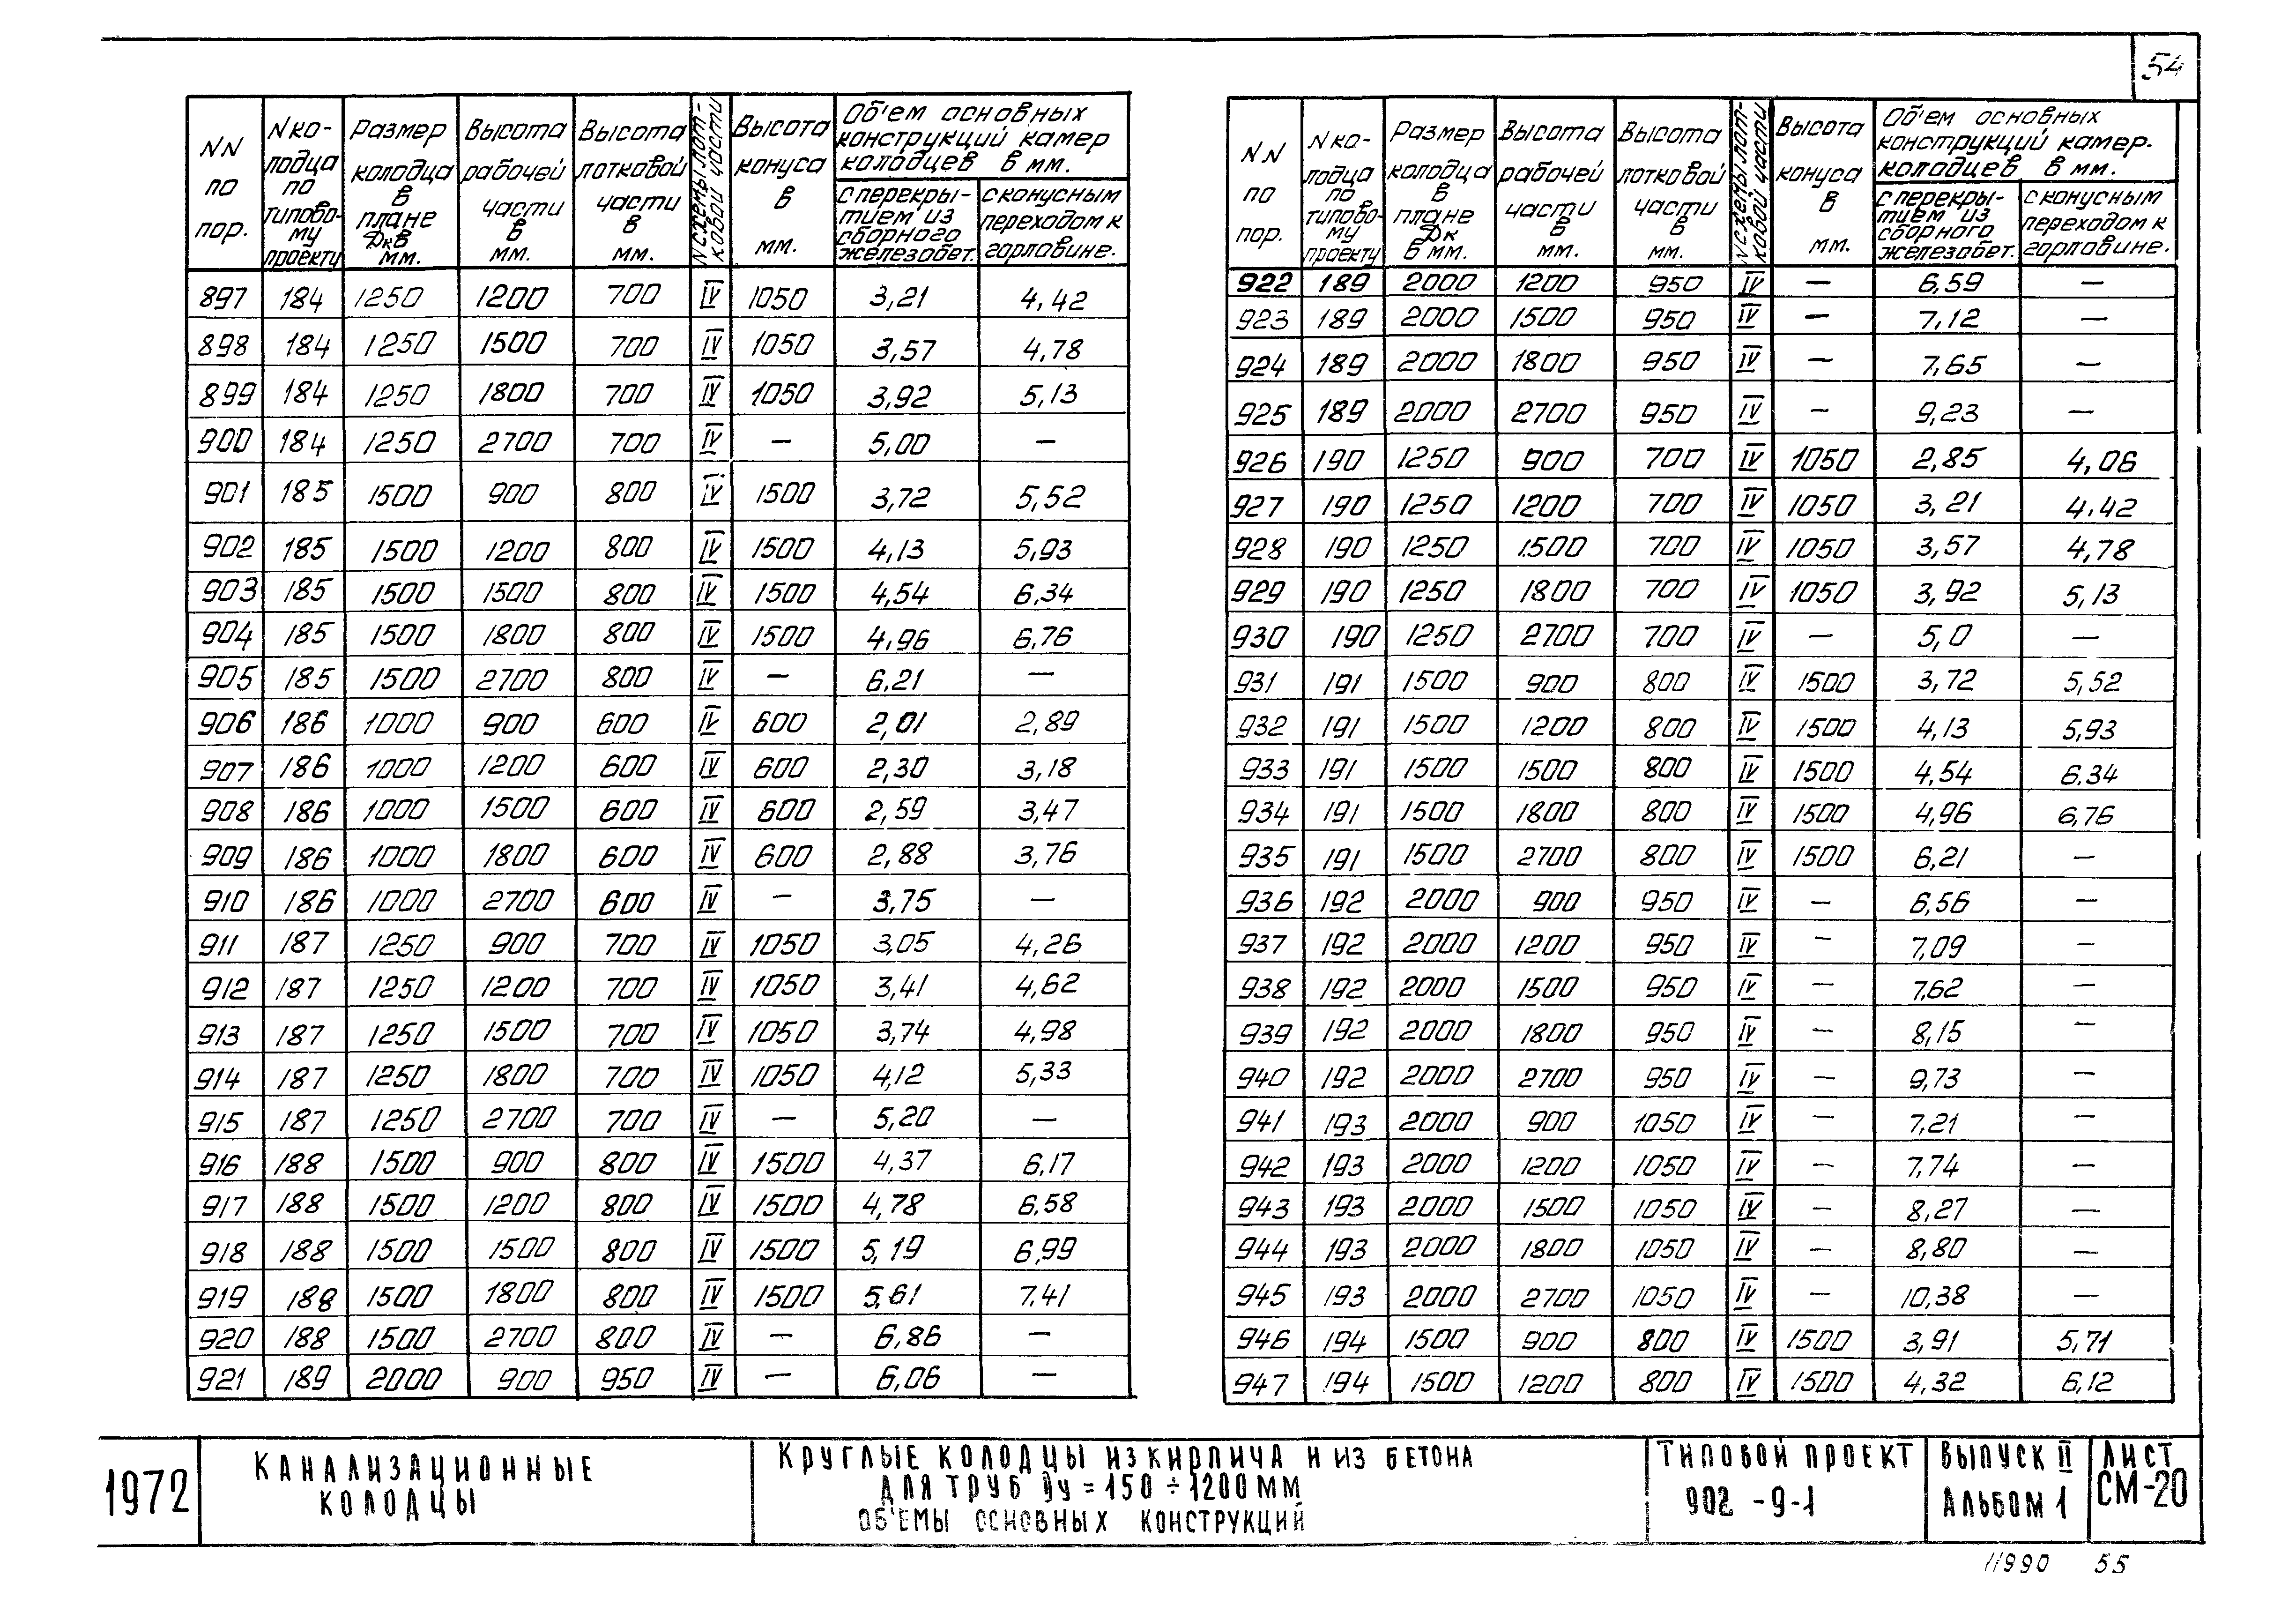 54
NN по пор. | N колодца по типовому проекту | Размер колодца в плане Дк в мм. | Высота рабочей части в мм. | Высота лотковой части в мм. | N схемы лотковой части | Высота конуса в мм. | Объем основных конструкций камер колодцев в мм. | с перекрытием из сборного железобет. | с конусным переходом к горловине.
897 184 1250 1200 700 IV 1050 3,21 4,42
898 184 1250 1500 700 IV 1050 3,57 4,78
899 184 1250 1800 700 IV 1050 3,92 5,13
900 184 1250 2700 700 IV — 5,00 —
901 185 1500 900 800 IV 1500 3,72 5,52
902 185 1500 1200 800 IV 1500 4,13 5,93
903 185 1500 1500 800 IV 1500 4,54 6,34
904 185 1500 1800 800 IV 1500 4,96 6,76
905 185 1500 2700 800 IV — 6,21 —
906 186 1000 900 600 IV 600 2,01 2,89
907 186 1000 1200 600 IV 600 2,30 3,18
908 186 1000 1500 600 IV 600 2,59 3,47
909 186 1000 1800 600 IV 600 2,88 3,76
910 186 1000 2700 600 IV — 3,75 —
911 187 1250 900 700 IV 1050 3,05 4,26
912 187 1250 1200 700 IV 1050 3,41 4,62
913 187 1250 1500 700 IV 1050 3,74 4,98
914 187 1250 1800 700 IV 1050 4,12 5,33
915 187 1250 2700 700 IV — 5,20 —
916 188 1500 900 800 IV 1500 4,37 6,17
917 188 1500 1200 800 IV 1500 4,78 6,58
918 188 1500 1500 800 IV 1500 5,19 6,99
919 188 1500 1800 800 IV 1500 5,61 7,41
920 188 1500 2700 800 IV — 6,86 —
921 189 2000 900 950 IV — 6,06 —
NN по пор. | N колодца по типовому проекту | Размер колодца в плане Дк в мм. | Высота рабочей части в мм. | Высота лотковой части в мм. | N схемы лотковой части | Высота конуса в мм. | Объем основных конструкций камер. колодцев в мм. | с перекрытием из сборного железобет. | с конусным переходом к горловине.
922 189 2000 1200 950 IV — 6,59 —
923 189 2000 1500 950 IV — 7,12 —
924 189 2000 1800 950 IV — 7,65 —
925 189 2000 2700 950 IV — 9,23 —
926 190 1250 900 700 IV 1050 2,85 4,06
927 190 1250 1200 700 IV 1050 3,21 4,42
928 190 1250 1500 700 IV 1050 3,57 4,78
929 190 1250 1800 700 IV 1050 3,92 5,13
930 190 1250 2700 700 IV — 5,0 —
931 191 1500 900 800 IV 1500 3,72 5,52
932 191 1500 1200 800 IV 1500 4,13 5,93
933 191 1500 1500 800 IV 1500 4,54 6.34
934 191 1500 1800 800 IV 1500 4,96 6,76
935 191 1500 2700 800 IV 1500 6,21 —
936 192 2000 900 950 IV — 6,56 —
937 192 2000 1200 950 IV — 7,09 —
938 192 2000 1500 950 IV — 7,62 —
939 192 2000 1800 950 IV — 8,15 —
940 192 2000 2700 950 IV — 9,73 —
941 193 2000 900 1050 IV — 7,21 —
942 193 2000 1200 1050 IV — 7,74 —
943 193 2000 1500 1050 IV — 8,27 —
944 193 2000 1800 1050 IV — 8,80 —
945 193 2000 2700 1050 IV — 10,38 —
946 194 1500 900 800 IV 1500 3,91 5,71
947 194 1500 1200 800 IV 1500 4,32 6,12
1972
КАНАЛИЗАЦИОННЫЕ
КОЛОДЦЫ
КРУГЛЫЕ КОЛОДЦЫ ИЗ КИРПИЧА И ИЗ БЕТОНА
ДЛЯ ТРУБ Ду = 150 ÷ 1200 ММ
ОБ'ЕМЫ ОСНОВНЫХ КОНСТРУКЦИЙ
ТИПОВОЙ ПРОЕКТ
902-9-1
ВЫПУСК II
АЛЬБОМ 1
ЛИСТ
СМ-20
11990 55